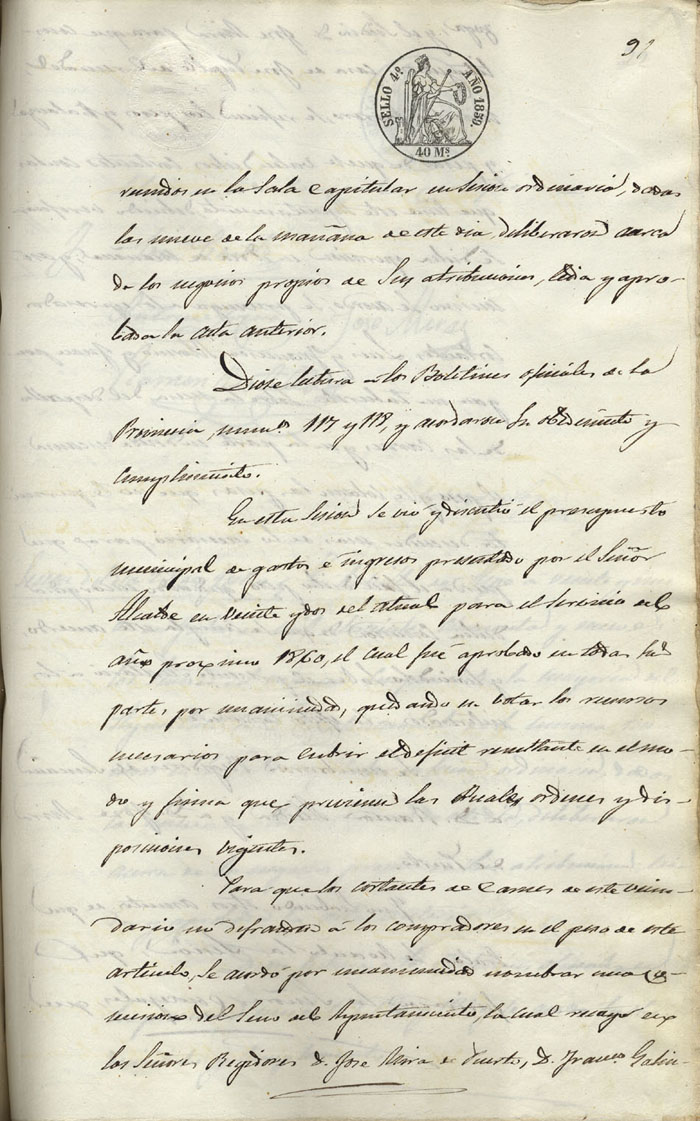 92
SELLO 4º AÑO 1859.
40 Ms
reunidos en la Sala Capitular en Sesion ordinaria, dadas
las nueve de la mañana de este dia, deliberaron acerca
de los negocios propios de sus atribuciones, leida y apro-
bada la acta anterior.
Diose lectura a los Boletines oficiales de la
Provincia, numos 117 y 118, y acordaron su obedecimto y
cumplimiento.
En esta Sesion se vio y discutió el presupuesto
municipal de gastos e ingresos presentado por el Señor
Alcalde en veinte y dos del actual para el servicio del
año procximo 1860, el cual fué aprobado en todas sus
partes por unanimidad, quedando en votar los recursos
necesarios para cubrir el deficit resultante en el mo-
do y forma que previenen las Reales ordenes y dis-
posiciones vigentes.
Para que los cortantes de Carnes de este vecin-
dario no defrauden á los compradores en el peso de este
artículo, se acordó por unanimidad nombrar una Co-
mision del Seno del Ayuntamiento, la cual recayó en
los Señores Regidores D. Jose Mira e Puerto, D. Franco Galin-